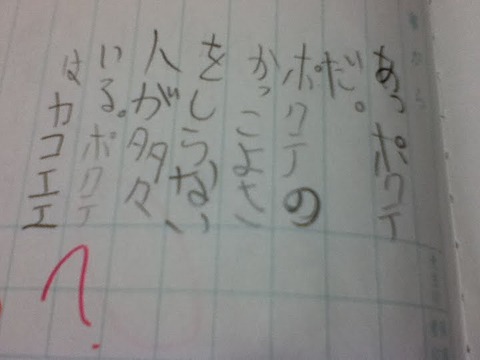 あっポクテ
だ。
ポクテの
かっこよさ
をしらない
人が多々
いる。ポクテ
はカコエエ
?